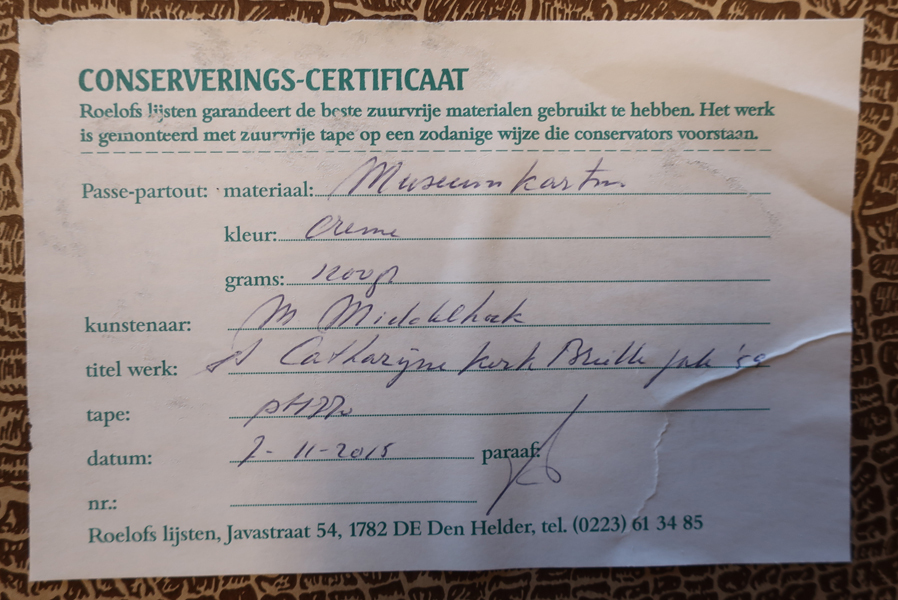 CONSERVERINGS-CERTIFICAAT
Roelofs lijsten garandeert de beste zuurvrije materialen gebruikt te hebben. Het werk
is gemonteerd met zuurvrije tape op een zodanige wijze die conservators voorstaan.
Passe-partout: materiaal: Museumkarton
kleur: Creme
grams: 1200gr
kunstenaar: M Middelhoek
titel werk: st Catharijne kerk Brielle
tape:
datum: 7-11-2015 paraaf:
nr.:
Roelofs lijsten, Javastraat 54, 1782 DE Den Helder, tel. (0223) 61 34 85